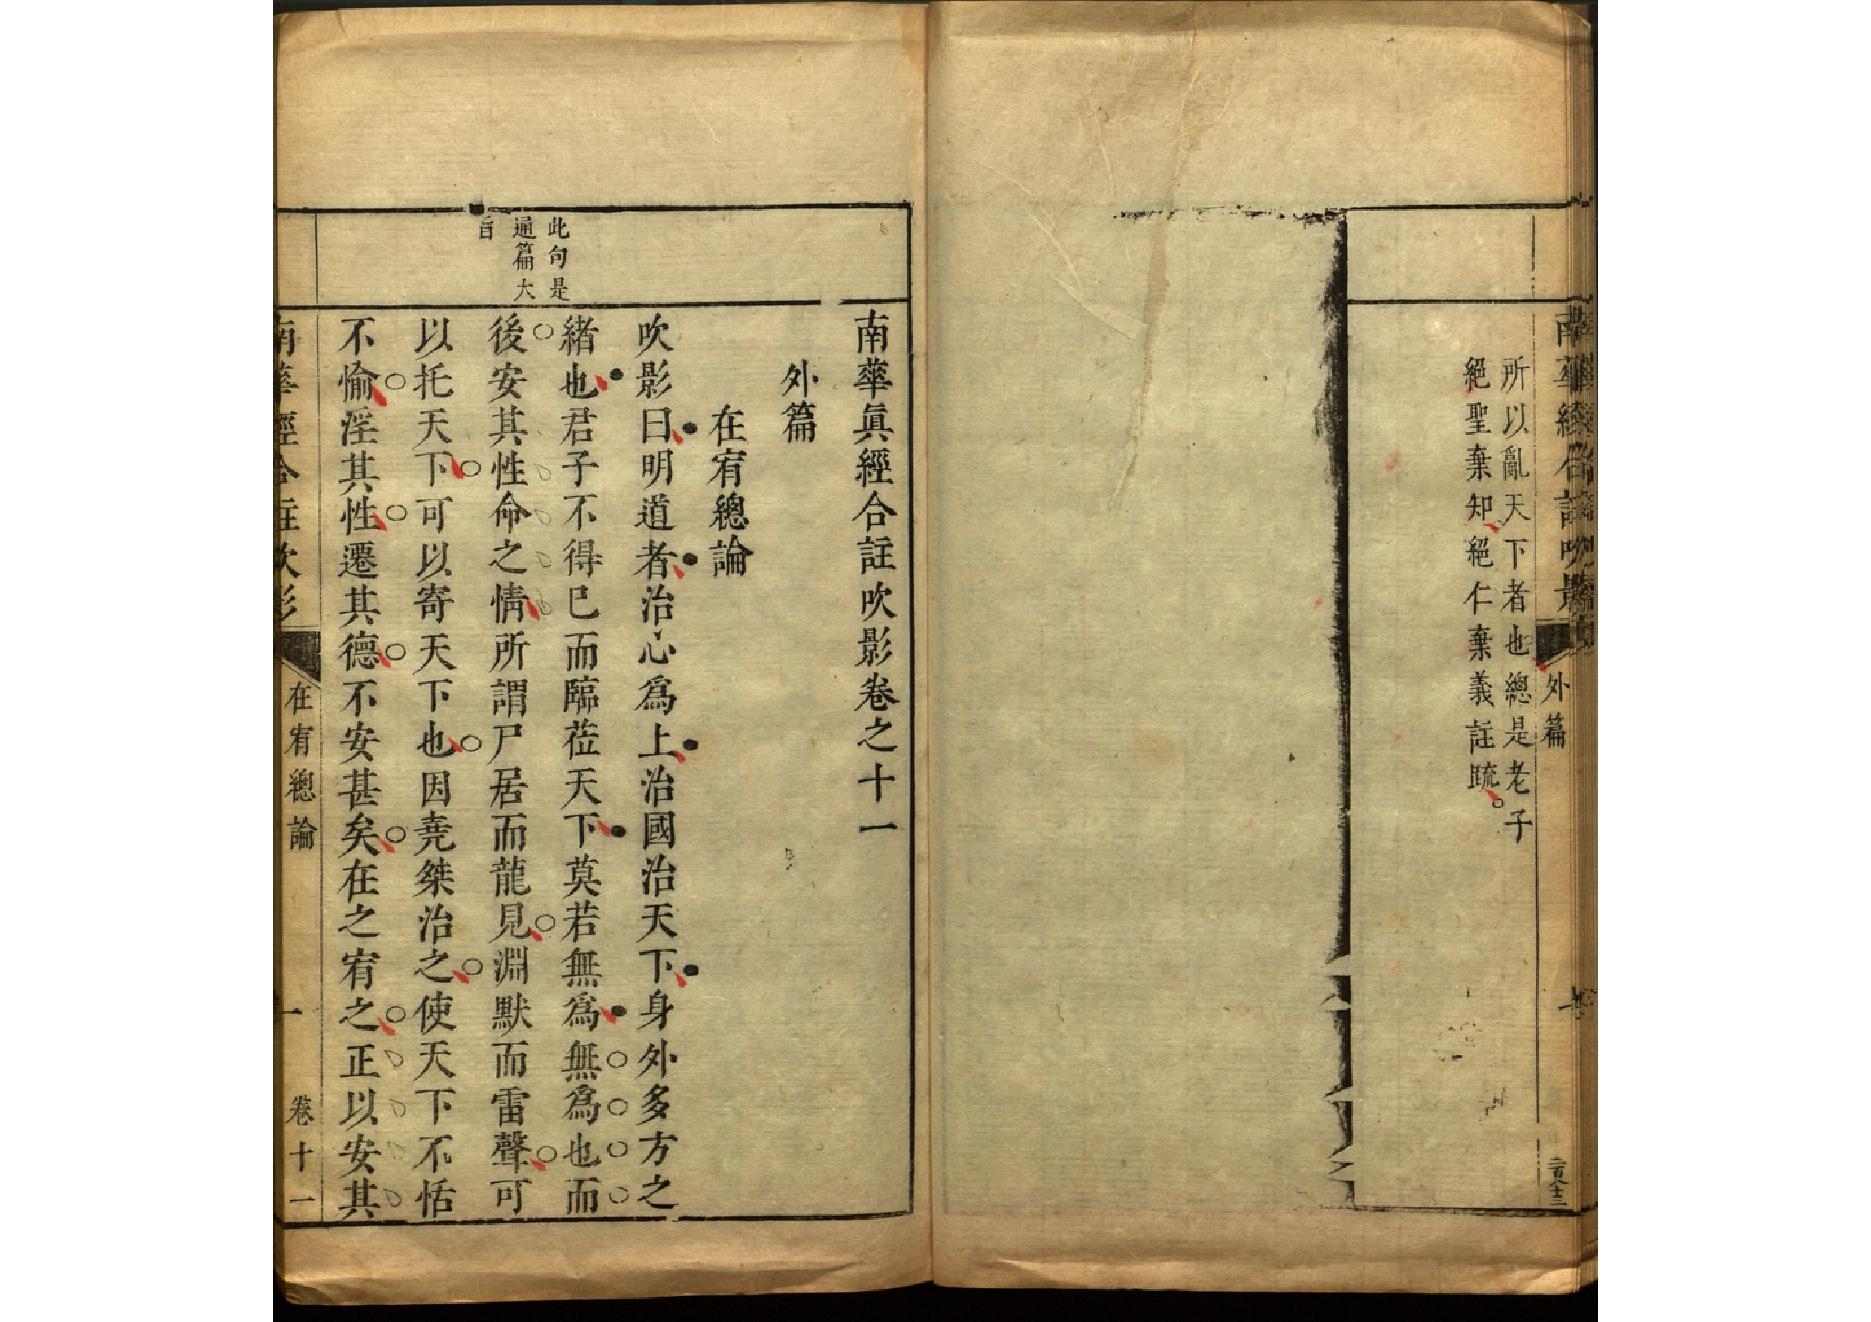 外篇
所以亂天下者也總是老子
絕聖棄知絕仁棄義註疏
南華眞經合註吹影卷之十一
外篇
在宥總論
此句是
通篇大
旨
吹影曰明道者治心爲上治國治天下身外多方之
緒也君子不得已而臨莅天下莫若無爲無爲也而
後安其性命之情所謂尸居而龍見淵默而雷聲可
以托天下可以寄天下也因堯桀治之使天下不恬
不愉淫其性遷其德不安甚矣在之宥之正以安其
南華經合註吹影
在宥總論
一
卷十一